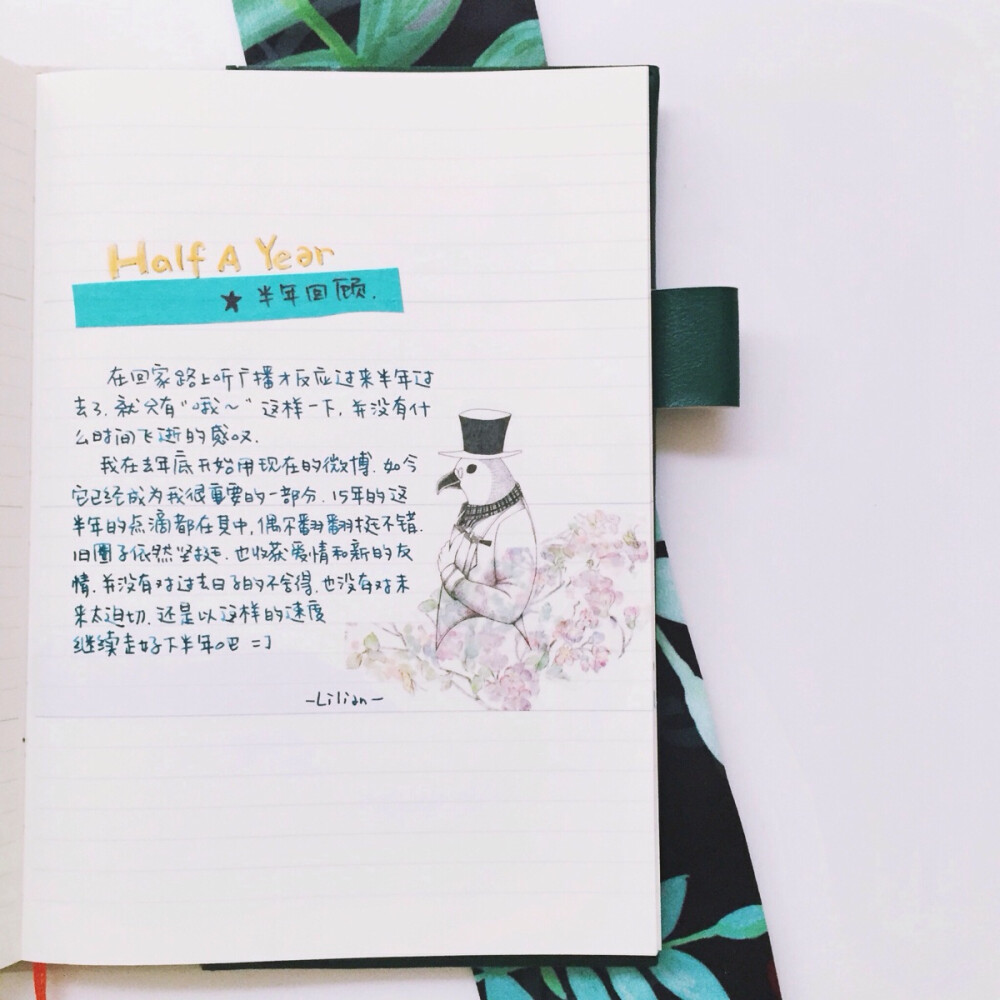 Half A Year
★ 半年回顾.
在回家路上听广播才反应过来半年过
去了.就只有"哦~"这样一下,并没有什
么时间飞逝的感叹.
我在去年底开始用现在的微博.如今
它已经成为我很重要的一部分.15年的这
半年的点滴都在其中,偶尔翻翻挺不错.
旧圈子依然坚挺.也收获爱情和新的友
情.并没有对过去日子的不舍得.也没有对未
来太迫切.还是以这样的速度
继续走好下半年吧 =]
-Lilian-